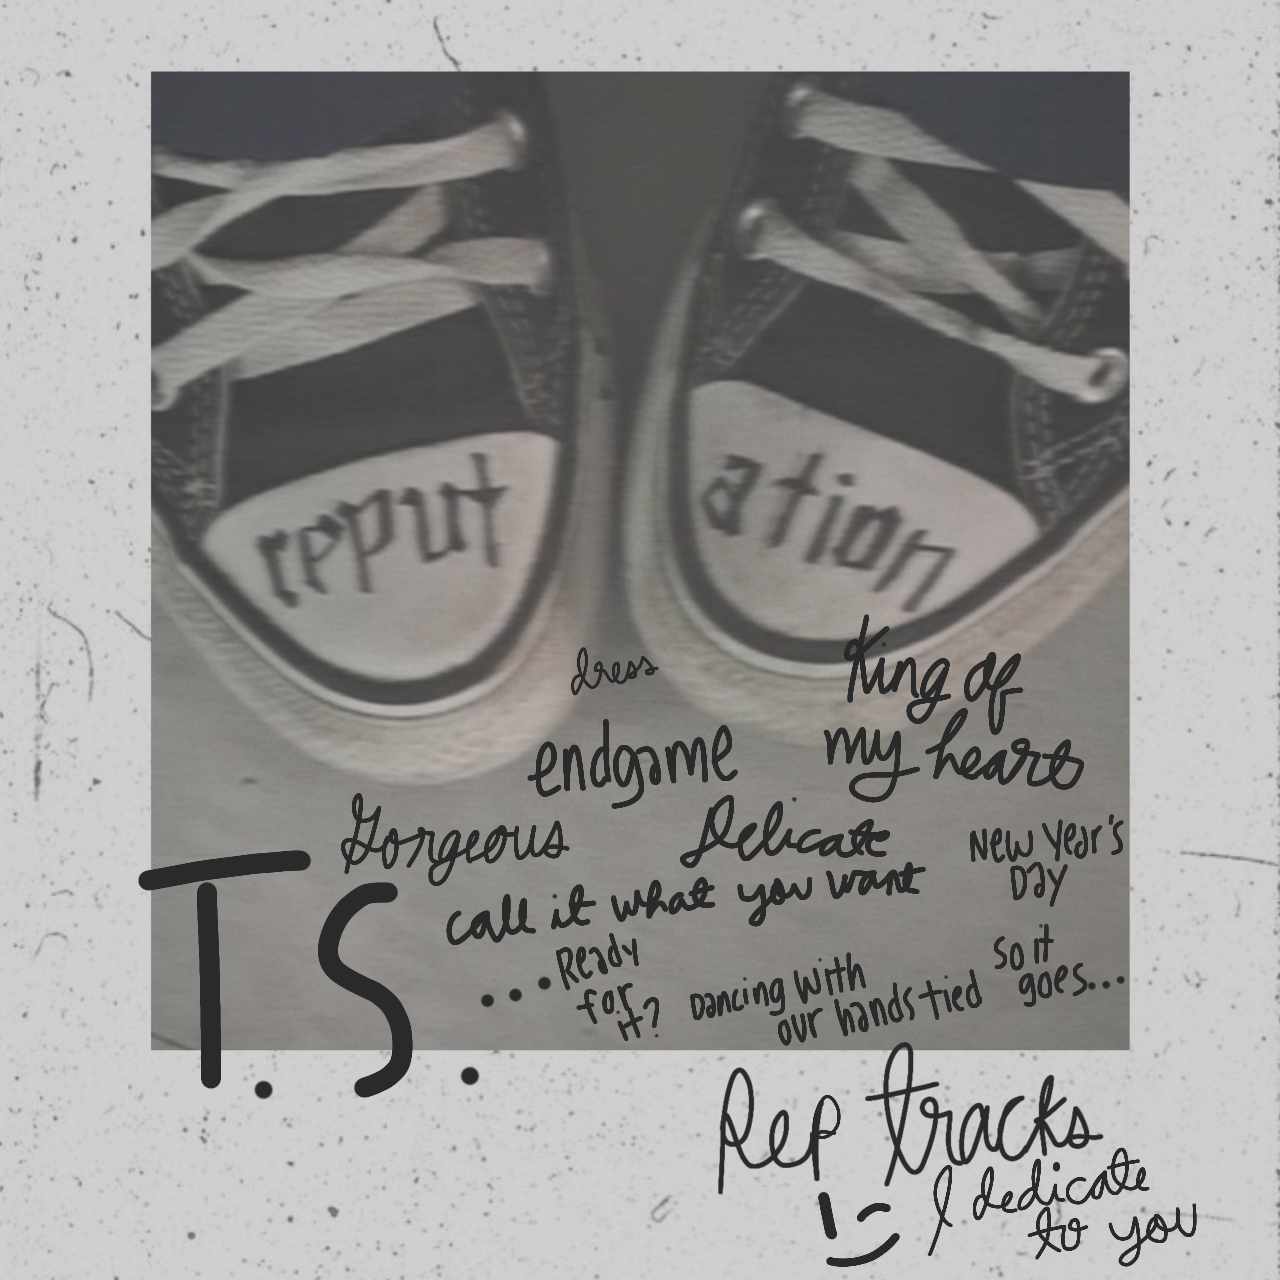 reput ation
dress
King of
my heart
endgame
Gorgeous
Delicate
New Year's
Day
call it what you want
T.S.
...Ready
for
it?
Dancing with
our hands tied
So it
goes...
Rep tracks
I dedicate
to you